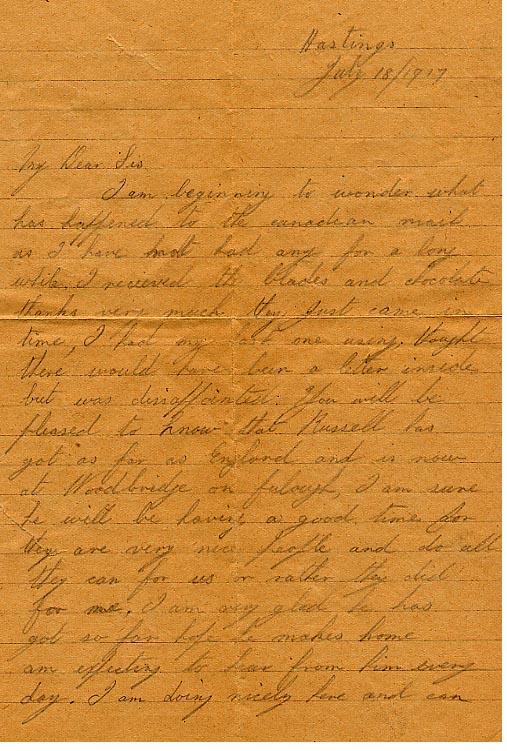 Hastings
July 18/1917
My Dear Sis
I am beginning to wonder what
has happened to the canadian mail
as I have not had any for a long
while. I recieved the blades and chocolate
thanks very much they just came in
time, I had my last one using. thought
there would have been a letter inside
but was dissappointed. You will be
pleased to know that Russell has
got as far as England and is now
at Woodbridge on falough, I am sure
he will be having a good time for
they are very nice people and do all
they can for us or rather they did
for me. I am very glad he has
got so far hope he makes home
am expecting to hear from him every
day. I am doing nicely here and can